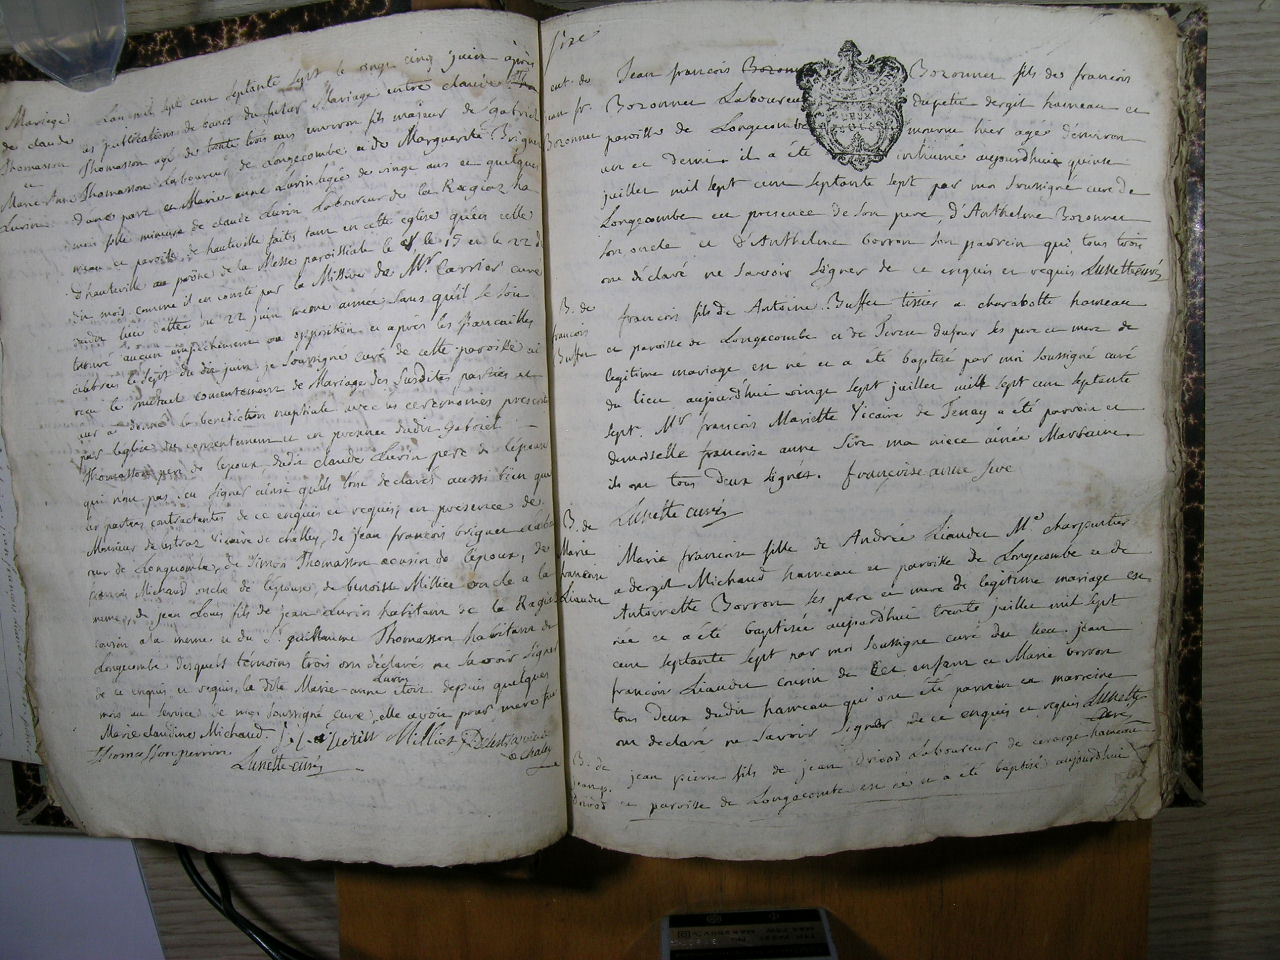 Mariage
de claude
Thomasson
et
Marie Anne
Lurin
Lan mil sept cent septante sept le vingt cinq juin après
les publications de bancs du futur Mariage entre claude
Thomasson agé de trente trois ans environ fils majeur de Gabriel
Thomasson Laboureur de Longecombe et de Marguerite Briguet
dune part et Marie anne Lurin agée de vingt ans et quelques
mois fille mineure de claude Lurin Laboureur de la Ragiaz ha
meau et paroisse de hauteville faites tant en cette eglise qu'en celle
d'hauteville au prône de la Messe paroissiale le 15 et le 22 du
du mois comme il en conste par la Missive de Mr. Carrier curé
dudit lieu dattée du 22 juin meme année sans qu'il se soit
trouvé aucun empêchement ou opposition et après les fiancailles
célébrées le sept du dit juin je soussigné curé de cette paroisse ai
recu le mutuel consentement de Mariage des susdites parties et
leur ai donné la benediction nuptiale avec les ceremonies prescrites
par leglise du consentement et en presence dudit Gabriel
Thomasson pere de lepoux dudit claude Lurin pere de lepouse
qui n'ont pas su signer ainsi qu'ils l'ont declaré aussi bien que
les parties contractantes de ce enquis et requis, en presence de
Monsieur delastraz Vicaire de challey, de jean francois briguet labou
reur de Longecombe, de Simon Thomasson cousin de l'epoux, de
francois Michaud oncle de l'epouse, de benoitte Milliet oncle a la
meme, de jean Louis fils de jean Lurin habitant de la Ragiaz
cousin a la meme et du Sr. guillaume Thomasson habitant de
Longecombe desquels témoins trois ont déclarés ne savoir signer
Lurin
de ce enquis et requis, la dite Marie-anne etoit depuis quelques
mois au service de moi soussigné curé, elle avoit pour mere feue
Marie claudine Michaud. Milliet Delastra vicaire
Thomasson Lunette curé de Chaley
Size
ent. de
jean fr.
Bozonnet
Jean francois Bozonnet fils de francois
Bozonnet Laboureur dupetit dergit hameau et
paroisse de Longecombe mourut hier agé d'environ
un an et demi. il a été inhumé aujourdhuie quinse
juillet mil sept cent septante sept par moi soussigné curé de
Longecombe en presence de son pere, d'Anthelme Bozonnet
son oncle et d'Anthelme borron son parrein qui tous trois
ont déclaré ne savoir signer de ce enquis et requis Lunette curé
B. de
francois
Buffet
francois fils de Antoine Buffet tissier a charabotte hameau
et paroisse de Longecombe et de Dufour ses pere et mere de
legitime mariage est né et a été baptisé par moi soussigné curé
du lieu aujourd'hui vingt sept juillet mille sept cent septante
sept. Mr. francois Mariette Vicaire de Tenay a été parrein et
demoiselle francoise anne Sive ma niece ainée Marraine.
ils ont tous deux signés. francoise anne sive
Lunette curé
B. de
Marie
francoise
Liaudet
Marie francoise fille de André Liaudet Me charpentier
a dergit Michaud hameau et paroisse de Longecombe et de
Antoinette Borron ses pere et mere de legitime mariage est
née et a été baptisée aujourdhui trente juillet mil sept
cent septante sept par moi soussigné curé du lieu. jean
francois Liaudet cousin de cet enfant et Marie borron
tous deux dudit hameau qui ont été parrein et marreine
ont declaré ne savoir signer de ce enquis et requis Lunette
curé
B. de
jean p.
Drivod
jean pierre fils de jean Drivod Laboureur de hameau
et paroisse de Longecombe est né et a été baptisé aujourdhui